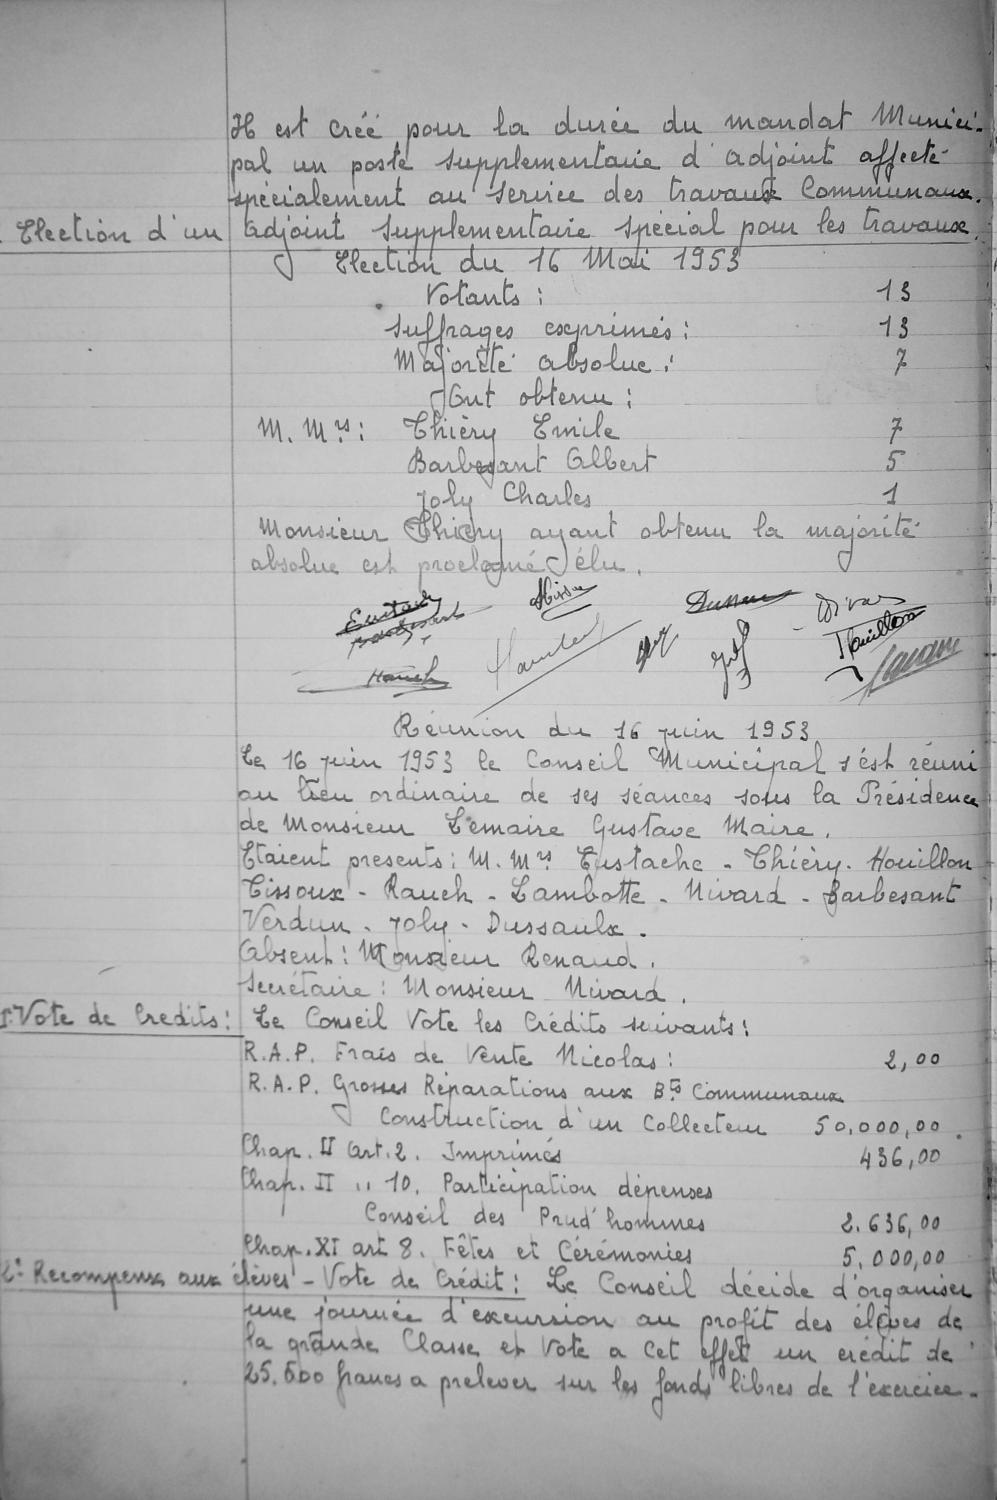 Il est créé pour la durée du mandat Munici-
pal un poste supplementaire d'adjoint affecté
spécialement au service des travaux Communaux.
Election d'un adjoint supplementaire spécial pour les travaux.
Election du 16 Mai 1953
Votants : 13
Suffrages exprimés : 13
Majorité absolue : 7
Ont obtenu :
M. Mrs : Thiéry Emile 7
Barbesant Albert 5
Joly Charles 1
Monsieur Thiéry ayant obtenu la majorité
absolue est proclamé élu.
Eustache
Barbesant
Rauch
Houillon
Réunion du 16 juin 1953
Le 16 juin 1953 le Conseil Municipal s'est réuni
au lieu ordinaire de ses séances sous la Présidence
de Monsieur Lemaire Gustave Maire.
Etaient presents : M. Mrs Eustache - Thiéry - Houillon
Tissoux - Rauch - Lambotte - Nivard - Barbesant
Verdun - Joly - Dussaulx.
Absent : Monsieur Renaud.
Secrétaire : Monsieur Nivard.
1° Vote de Credits : Le Conseil Vote les Crédits suivants :
R.A.P. Frais de Vente Nicolas : 2,00
R.A.P. Grosses Réparations aux Bts Communaux
Construction d'un Collecteur 50.000,00
Chap. II art. 2. Imprimés 436,00
Chap. II " 10. Participation dépenses
Conseil des Prud'hommes 2.636,00
Chap. XI art 8. Fêtes et Cérémonies 5.000,00
2° Recompenses aux élèves - Vote de Crédit : Le Conseil décide d'organiser
une journée d'excursion au profit des élèves de
la grande Classe et Vote a cet effet un crédit de
francs a prelever sur les fonds libres de l'exercice.